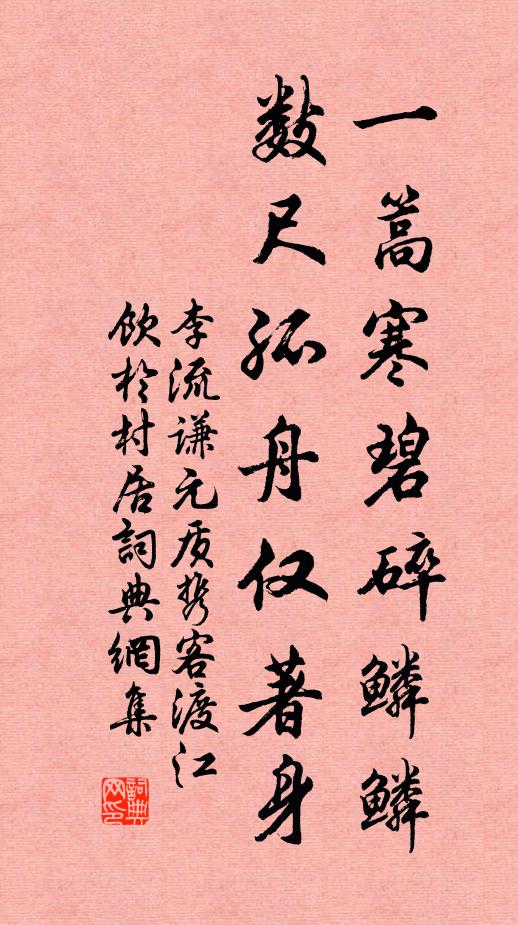 一蒿寒碧碎鳞鳞
数尺孤舟仅著身
李流谦元质携客渡江
饮於村居詞典網集
詞典
网印